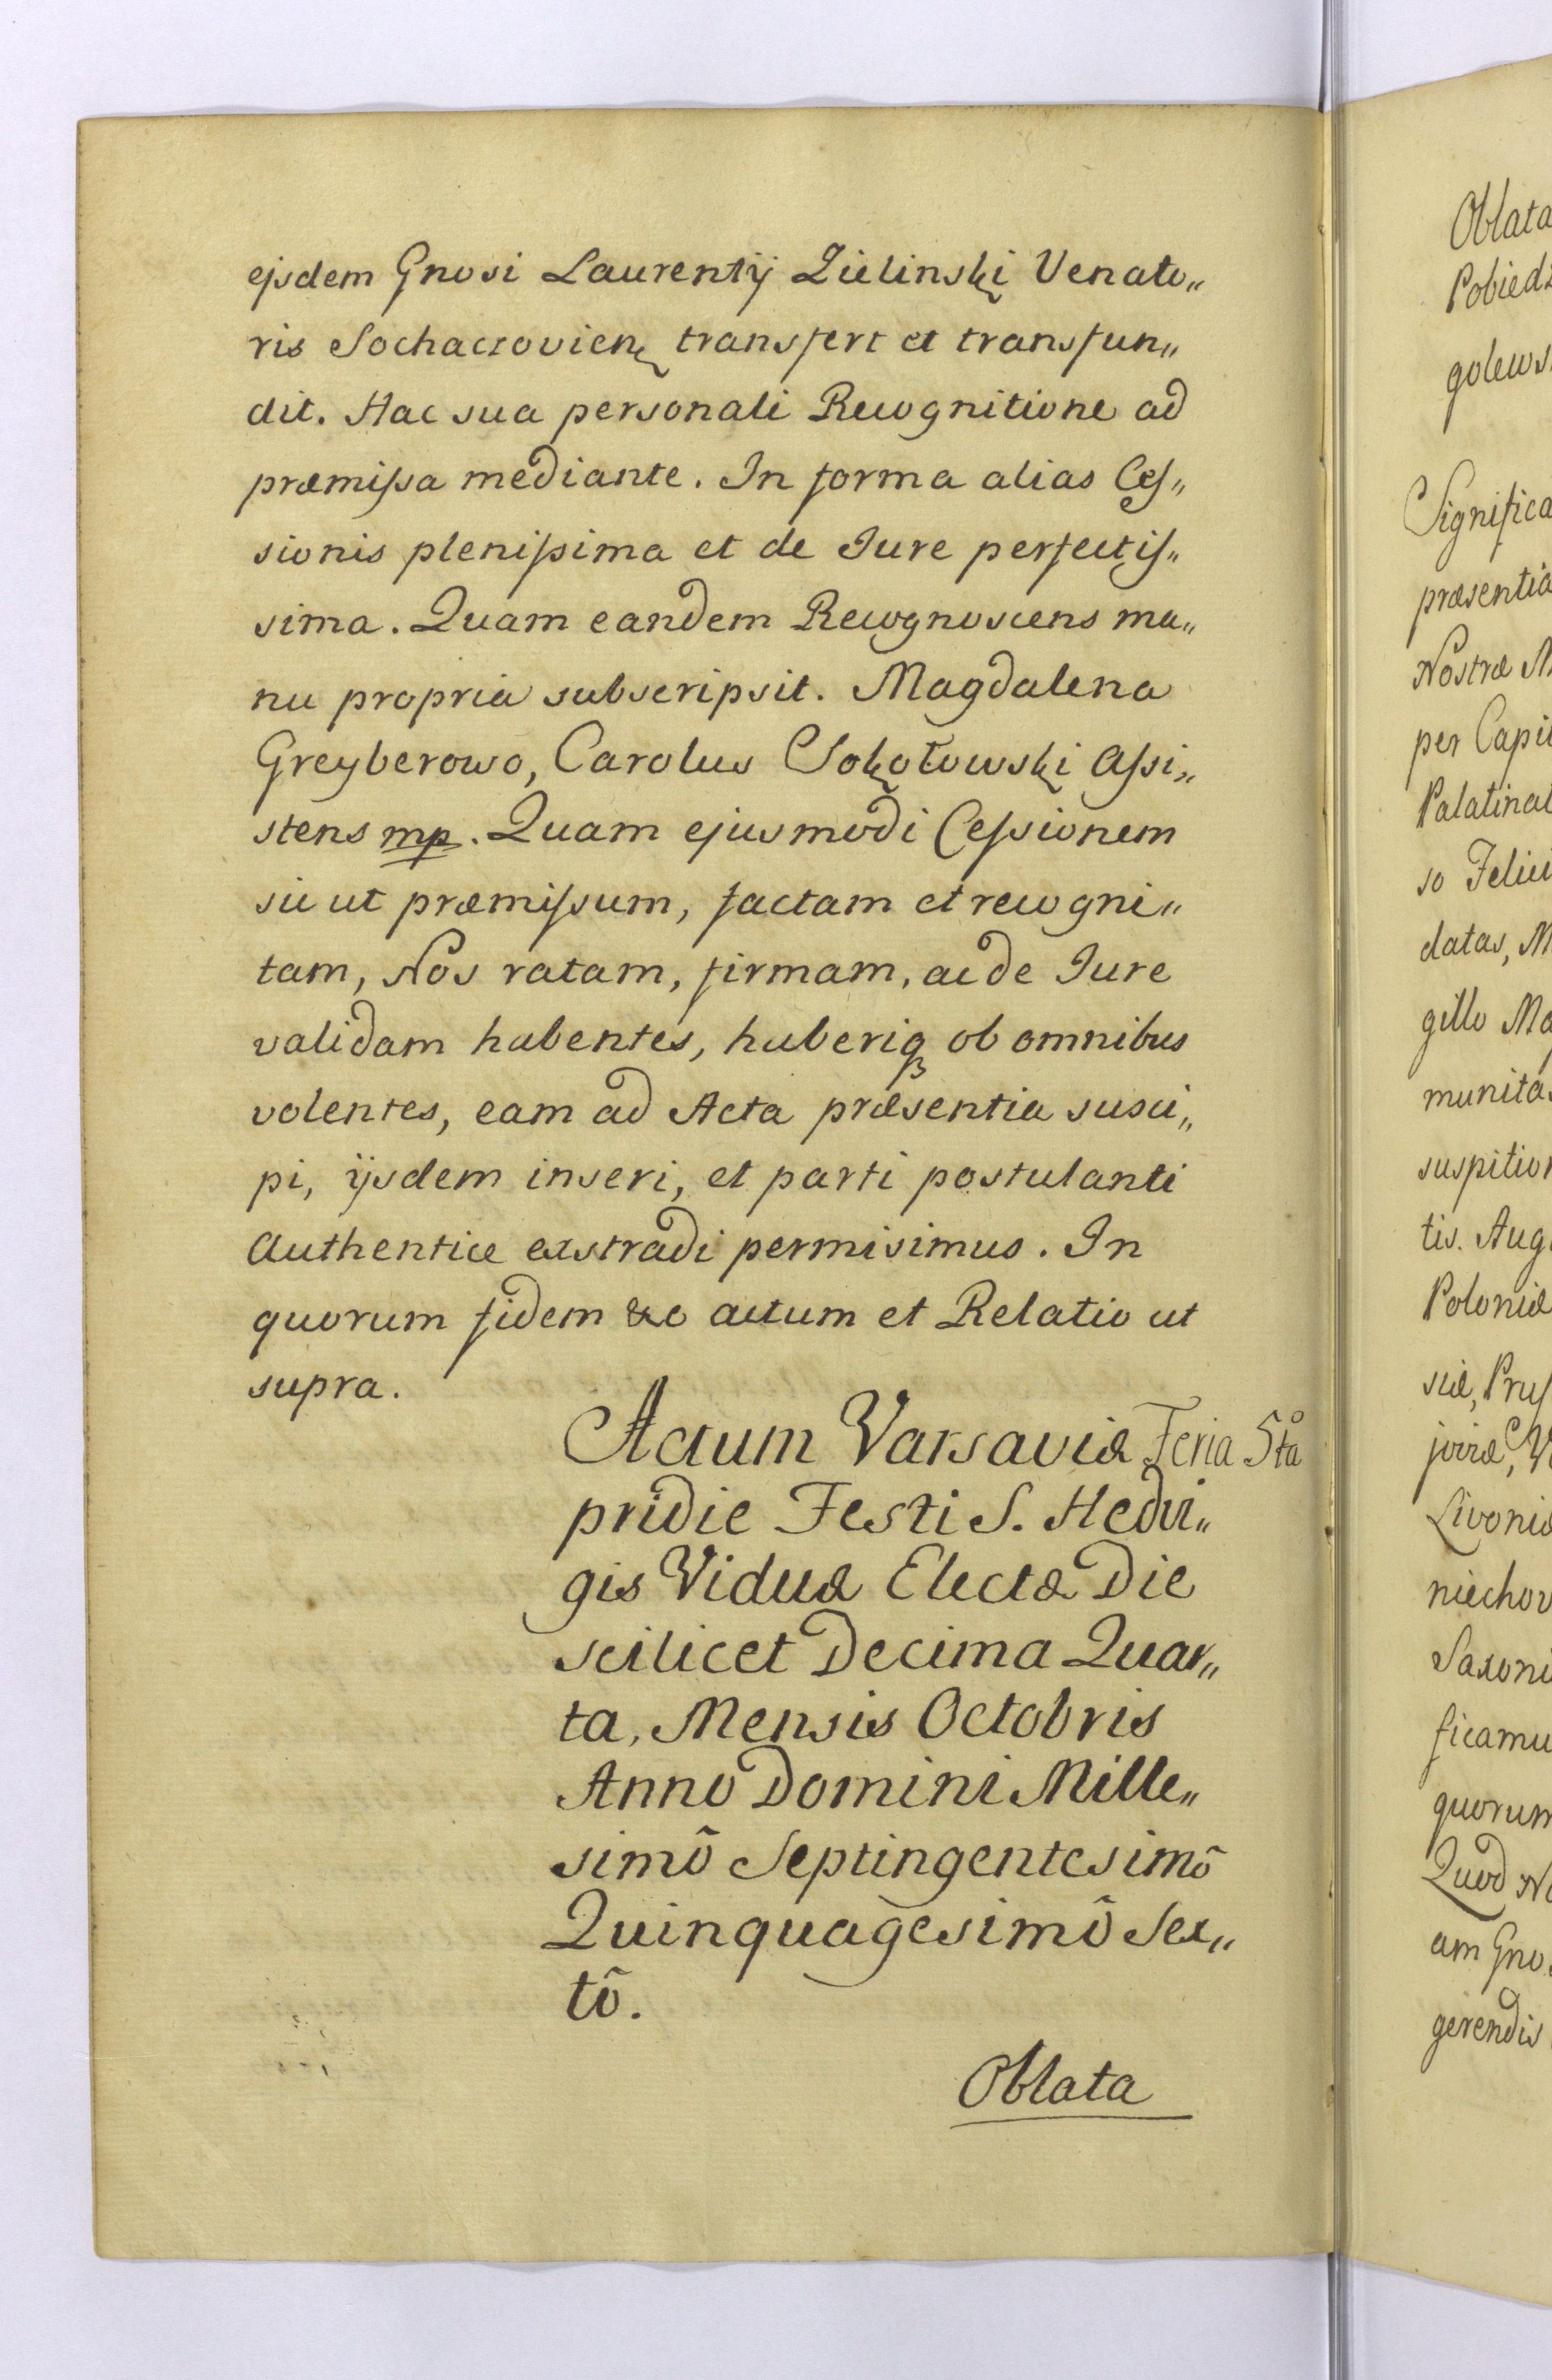 ejsdem Gnosi Laurentÿ Zielinski Venato„
ris Sochaczovien transfert et transfun„
dit. Hac sua personali Recognitione ad
præmissa mediante. In forma alias Ces„
sionis plenissima et de Jure perfectis„
sima. Quam eandem Recognoscens ma„
nu propria subscripsit. Magdalena
Greyberowo, Carolus Sokołowski Assi„
stens mp. Quam ejusmodi Cessionem
sic ut præmissum, factam et recogni„
tam, Nos ratam, firmam, ac de Jure
validam habentes, haberiq ob omnibus
volentes, eam ad Acta præsentia susci„
pi, ijsdem inseri, et parti postulanti
Authentice exstradi permisimus. In
quorum fidem &c actum et Relatio ut
supra.
Actum Varsaviæ Feria 5ta
pridie Festi S. Hedvi„
gis Viduæ Electæ Die
scilicet Decima Quar„
ta, Mensis Octobris
Anno Domini Mille„
simô Septingentesimô
Quinquagesimô Sex„
tô.
Oblata
Oblata
Pobiedz
golews
Significa
præsentia
Nostræ M
per Capi
Palatinat
so Felici
datas, M
gillo Ma
munitas
suspition
tis. Aug
Poloniæ
siæ, Prus
joviæ, V
Livoniæ
niechov
Saxoni
ficamu
quorum
Quod No
am Gno
gerendis